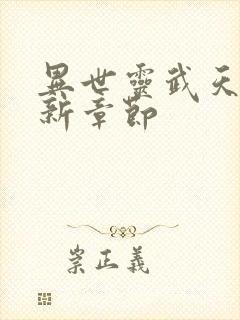 異世靈武天
新章節
崇正義